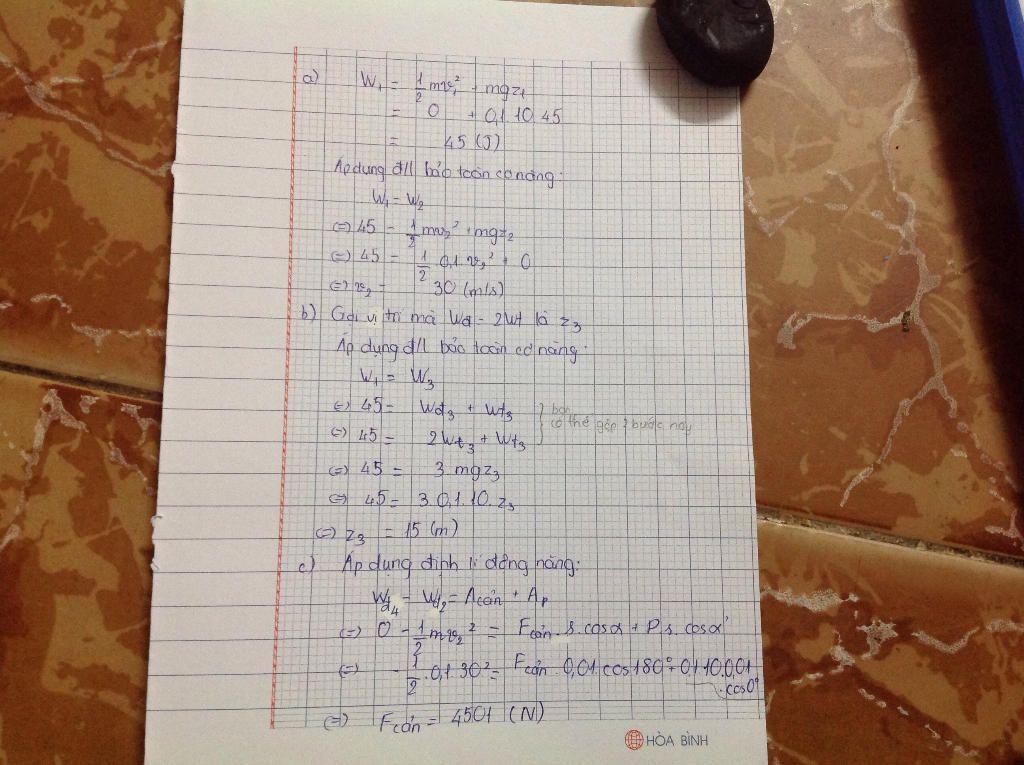 a) W₁ = 1/2 mv₁² + mgz₁
= 0 + 0,1.10.45
= 45 (J)
Áp dụng đ/l bảo toàn cơ năng:
W₁ = W₂
(=) 45 = 1/2 mv₂² + mgz₂
(=) 45 = 1/2 0,1 v₂² + 0
(=) v₂ = 30 (m/s)
b) Gọi vị trí mà Wđ = 2Wt là z₃
Áp dụng đ/l bảo toàn cơ năng:
W₁ = W₃
(=) 45 = Wđ₃ + Wt₃
bạn
có thể gộp 2 bước này
(=) 45 = 2Wt₃ + Wt₃
(=) 45 = 3 mgz₃
(=) 45 = 3.0,1.10.z₃
(=) z₃ = 15 (m)
c) Áp dụng định lí động năng:
Wđ₄ - Wđ₂ = Acản + Ap
(=) 0 - 1/2 mv₂² = Fcản . s. cosα + P.s. cosα'
(=) - 1/2 .0,1.30² = Fcản . 0,01.cos180° + 0,1.10.0,01
.cos0°
(=) Fcản = 4501 (N)
HÒA BÌNH